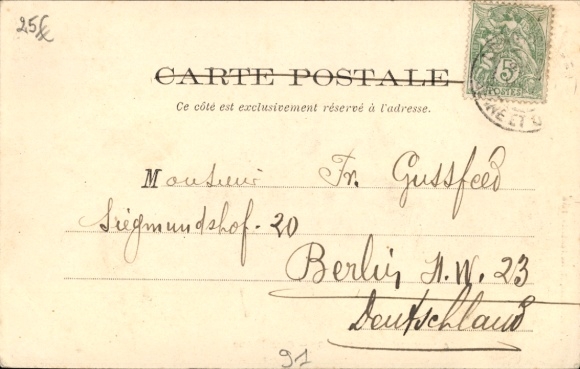 25
CARTE POSTALE
Ce côté est exclusivement réservé à l'adresse.
5
POSTES
NE ET
Monsieur Fr. Gussfeed
Siegmundshof. 20
Berlin N.W. 23
Deutschland
91